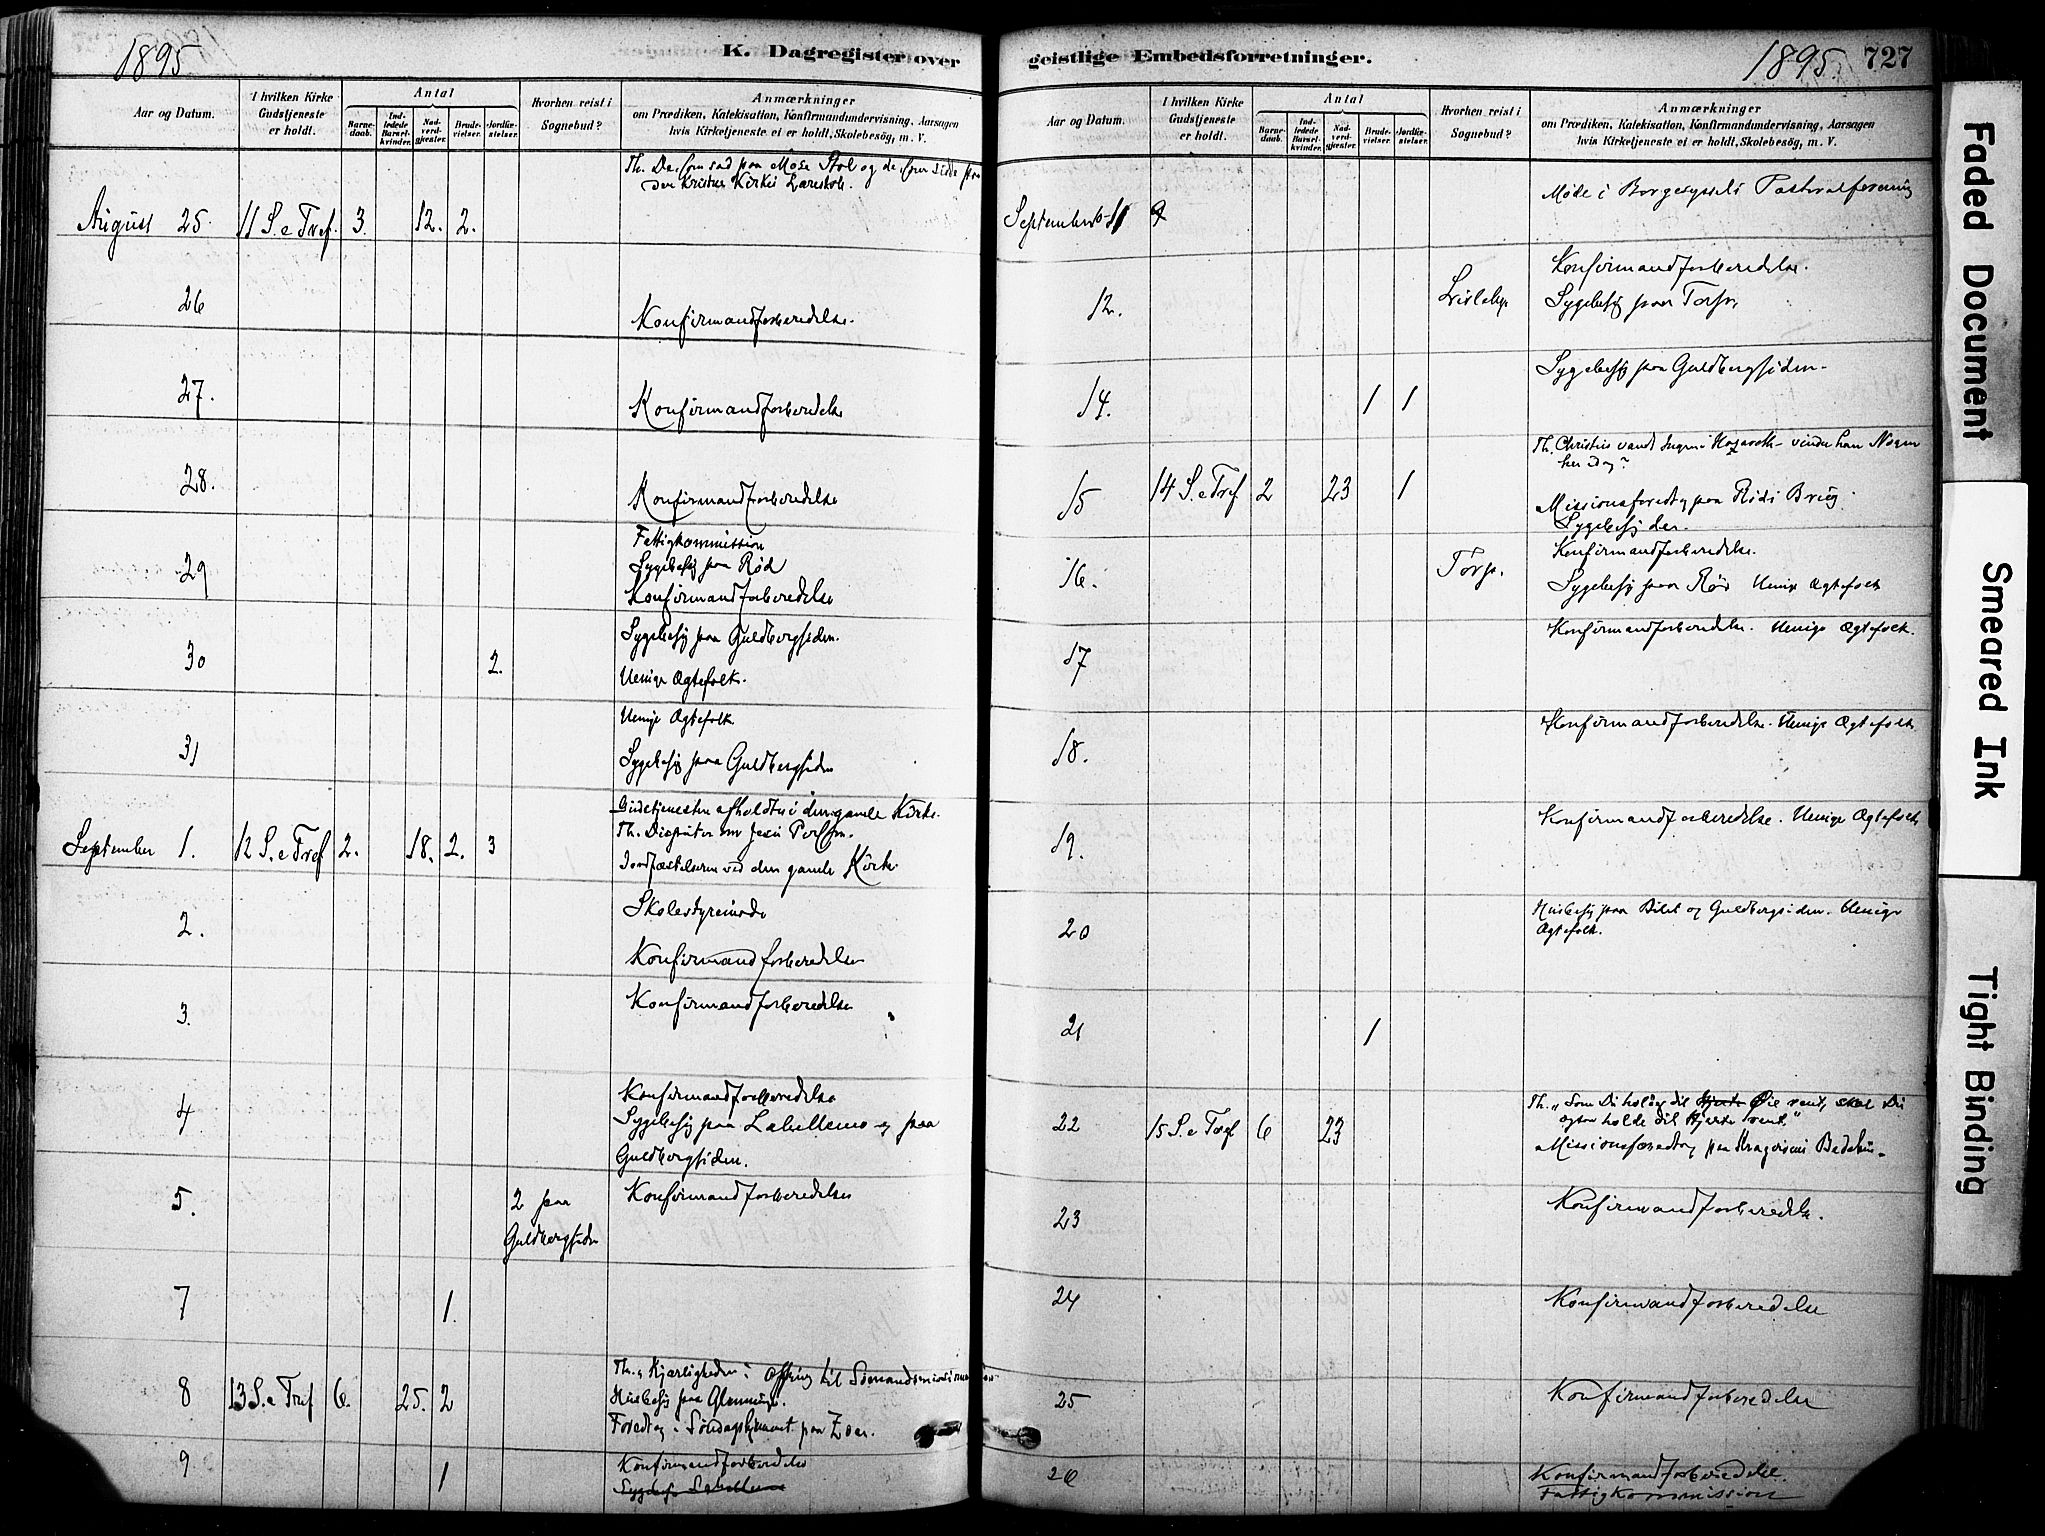 1895
K. Dagregister over
Aar og Datum.
I hvilken Kirke Gudstjeneste er holdt.
Antal
Barne-daab.
Ind-ledede Barsel-kvinder.
Nad-verd-gjester.
Brude-vielser.
Jordfæ-stelser.
Hvorhen reist i Sognebud?
Anmærkninger
om Prædiken, Katekisation, Konfirmandundervisning, Aarsagen
hvis Kirketjeneste ei er holdt, Skolebesög, m. V.
Th. De som sad paa Mose Stol og de som sidde paa
den kristne Kirkes Lærestole.
August 25. 11 S. e Tref. 3. 12. 2.
26 Konfirmandforberedelse.
27. Konfirmandforberedelse
28. Konfirmandforberedelse
Fattigkommission
29 Sygebesøg paa Rød
Konfirmandforberedelse
Sygebesøg paa Guldbergsiden.
30 2.
Uenige Ægtefolk.
Uenige Ægtefolk
31 Sygebesøg paa Guldbergsiden
Gudstjenesten afholdtes i den gamle Kirke.
Th. Disputen om Jesu Person.
September 1. 12 S. e Tref 2. 18. 2. 3
Jordfæstelserne ved den gamle Kirke
Skolestyremøde
2.
Konfirmandforberedelse
3. Konfirmandforberedelse
Konfirmandforberedelse
4 Sygebesøg paa Labellemo og paa
Guldbergsiden.
5. 2 paa Guldbergsiden Konfirmandforberedelse
7 1.
Th. "Kjærligheden". Offring til Sømandsmissionen
8 13 S. e Tref 6. 25. 2 Husbesøg paa Glemminge.
Foredrag i Søndagshjemmet paa Zoar.
9 1 Konfirmandforberedelse
geistlige Embedsforretninger.
1895.
727
Aar og Datum.
I hvilken Kirke Gudstjeneste er holdt.
Antal
Barne-daab.
Ind-ledede Barsel-kvinder.
Nad-verd-gjester.
Brude-vielser.
Jordfæ-stelser.
Hvorhen reist i Sognebud?
Anmærkninger
om Prædiken, Katekisation, Konfirmandundervisning, Aarsagen
hvis Kirketjeneste ei er holdt, Skolebesög, m. V.
Møde i Borgesyssels Pastoralforening
September 11
Konfirmandforberedelse.
12. Lisleby Sygebesøg paa Torp.
Sygebesøg paa Guldbergsiden.
14. 1 1
Th. Christus vandt Ingen i Nazareth – vinder han Nogen
her idag?
15 14 S. e Tref 2 23 1
Missionsforedrag paa Røds Brug.
Sygebesøg der.
Konfirmandforberedelse.
16. Torp. Sygebesøg paa Rød Uenige Ægtefolk
17 Konfirmandforberedelse. Uenige Ægtefolk.
18. Konfirmandforberedelse. Uenige Ægtefolk
19. Konfirmandforberedelse. Uenige Ægtefolk
20 Husbesøg paa Bilet og Guldbergsiden. Uenige
Ægtefolk.
21 1
Th. "Som Du holder dit Hjerte Øie rent, skal Du
ogsaa holde dit Hjerte rent."
22 15 S. e Tref 6 23
Missionsforedrag paa Kragerøens Bedehus.
23 Konfirmandforberedelse.
24 Konfirmandforberedelse
25 Konfirmandforberedelse
26 Konfirmandforberedelse.
Fattigkommission
Faded Document
Smeared Ink
Tight Binding